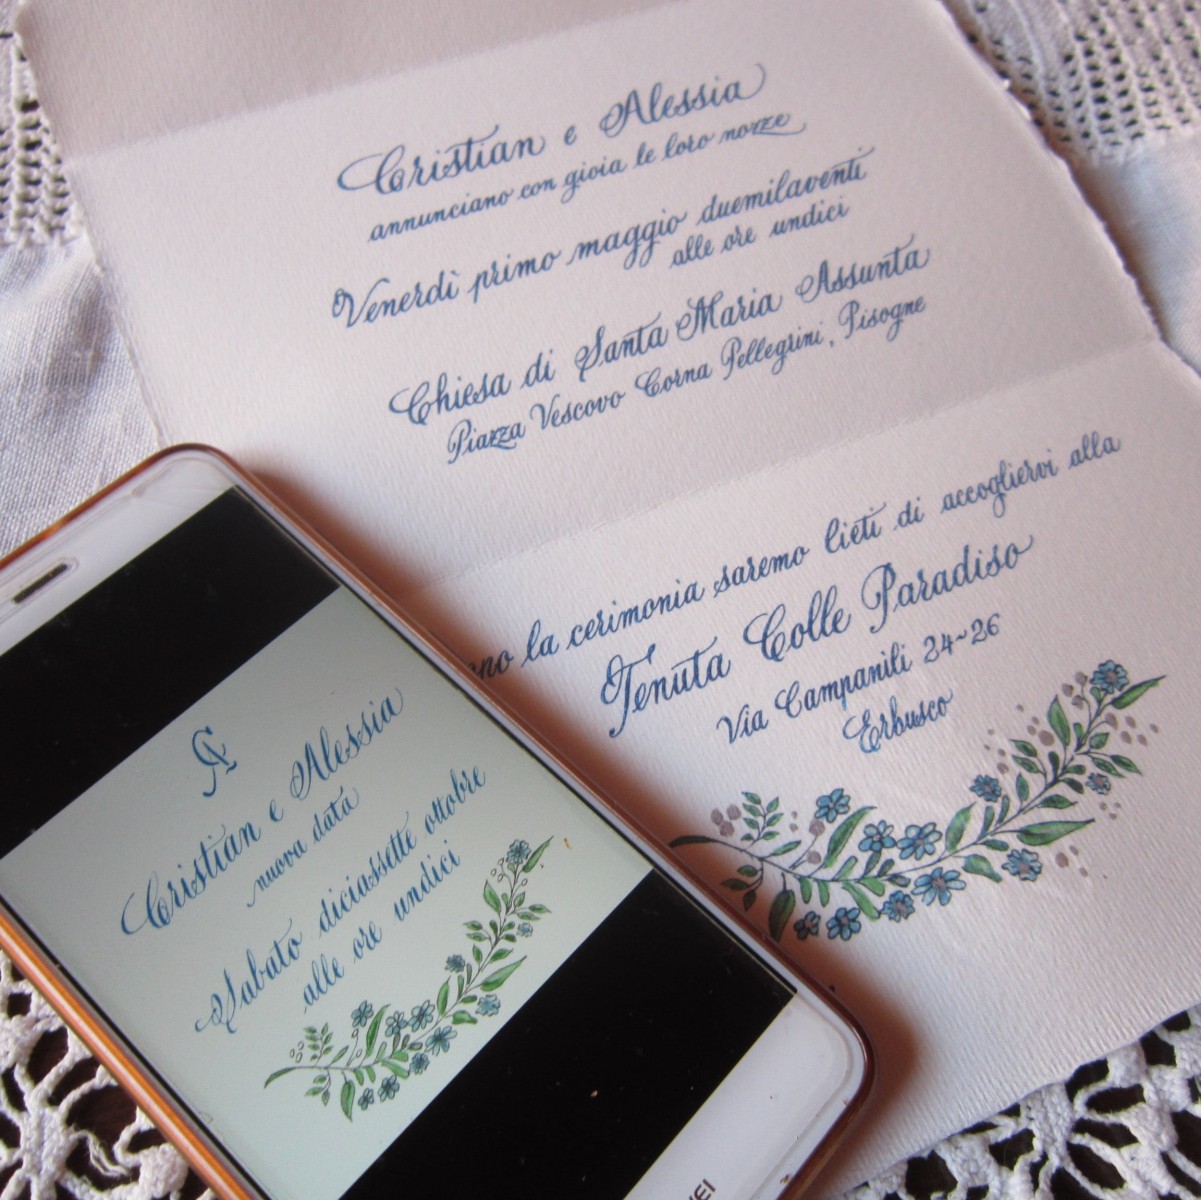 Cristian e Alessia
annunciano con gioia le loro nozze
Venerdì primo maggio duemilaventi
alle ore undici
Chiesa di Santa Maria Assunta
Piazza Vescovo Corna Pellegrini, Pisogne
la cerimonia saremo lieti di accogliervi alla
Tenuta Colle Paradiso
Via Campanili 24~26
Erbusco
CA
Cristian e Alessia
nuova data
Sabato diciassette ottobre
alle ore undici